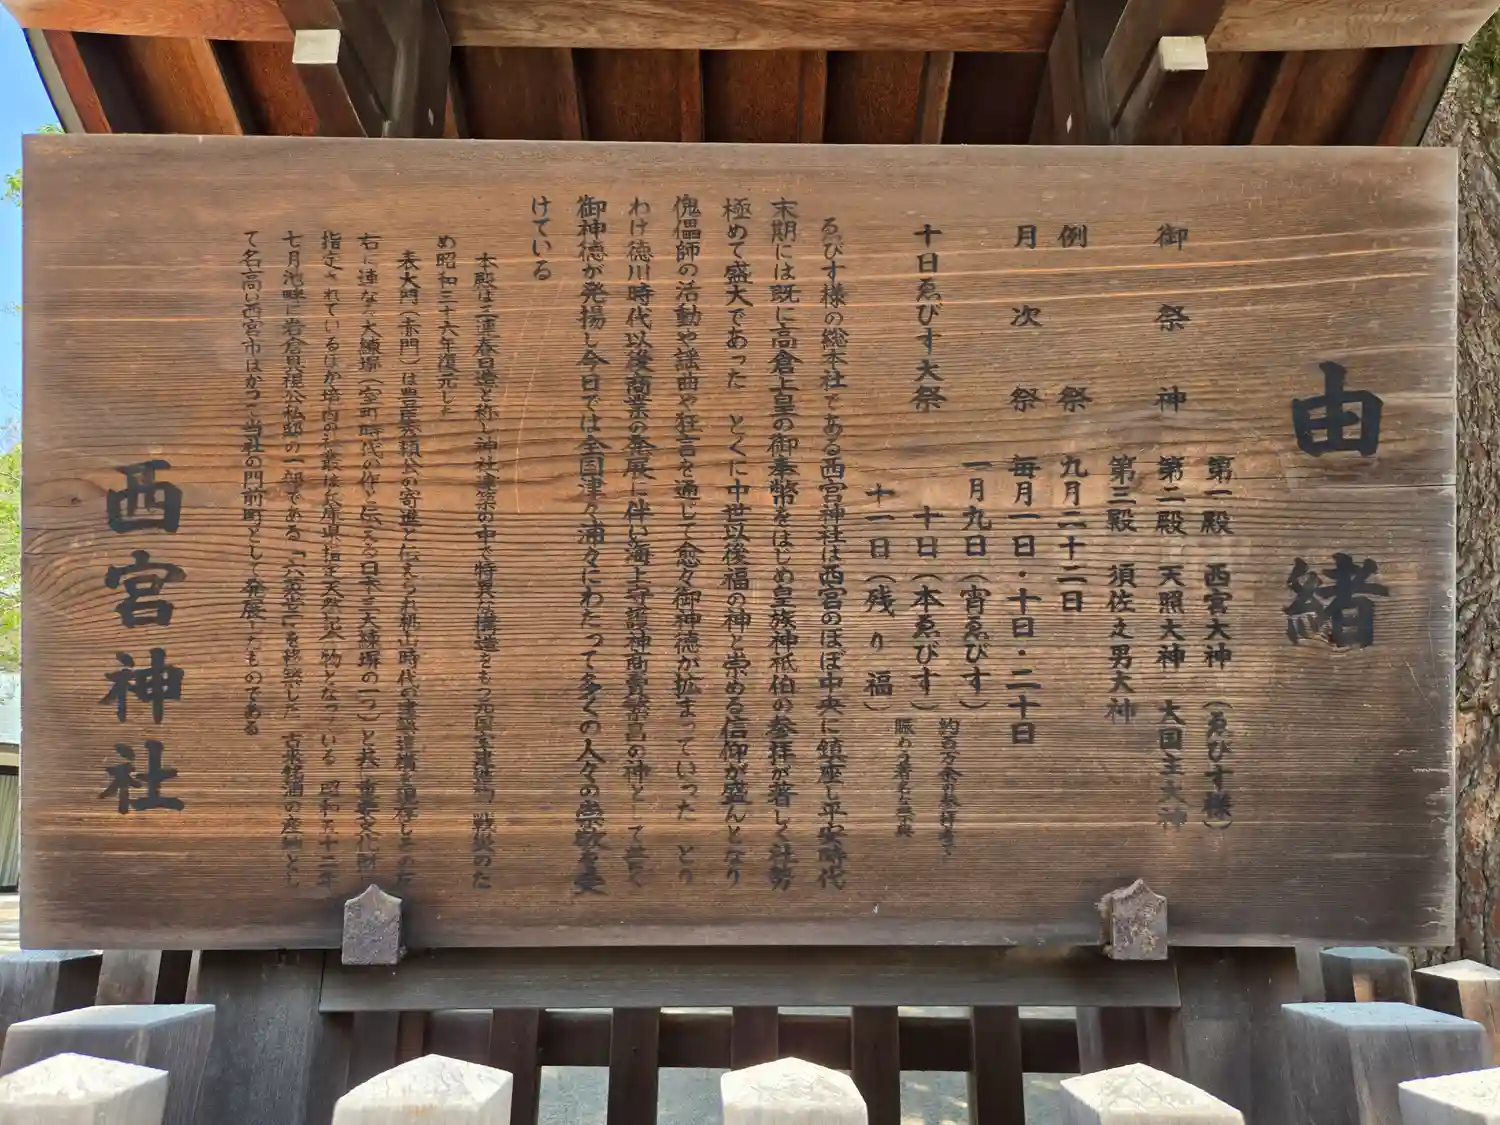 由緒
御祭神
第一殿 西宮大神（ゑびす様）
第二殿 天照大神 大国主大神
第三殿 須佐之男大神
例祭 九月二十二日
月次祭 毎月一日・十日・二十日
十日ゑびす大祭
一月九日（宵ゑびす）
十日（本ゑびす）
十一日（残り福）
約百万余の参拝者で
賑わう著名な祭典
ゑびす様の総本社である西宮神社は西宮のほぼ中央に鎮座し平安時代
末期には既に高倉上皇の御奉幣をはじめ皇族神祇伯の参拝が著しく社勢
極めて盛大であった とくに中世以後福の神と崇める信仰が盛んとなり
傀儡師の活動や謡曲や狂言を通じて愈々御神徳が拡まっていった とり
わけ徳川時代以後商業の発展に伴い海上守護神商売繁昌の神として普く
御神徳が発揚し今日では全国津々浦々にわたって多くの人々の崇敬を受
けている
本殿は三連春日造と称し神社建築の中で特異な構造をもつ元国宝建造物 戦災のた
め昭和三十六年復元した
表大門（赤門）は豊臣秀頼公の寄進と伝えられ桃山時代の建築遺構を現存しその左
右に連なる大練塀（室町時代の作と伝える日本三大練塀の一つ）と共に重要文化財に
指定されているほか境内の社叢は兵庫県指定天然記念物となっている 昭和五十二年
七月池畔に岩倉具視公私邸の一部である「六英堂」を移築した 古来銘酒の産地とし
て名高い西宮市はかつて当社の門前町として発展したものである
西宮神社